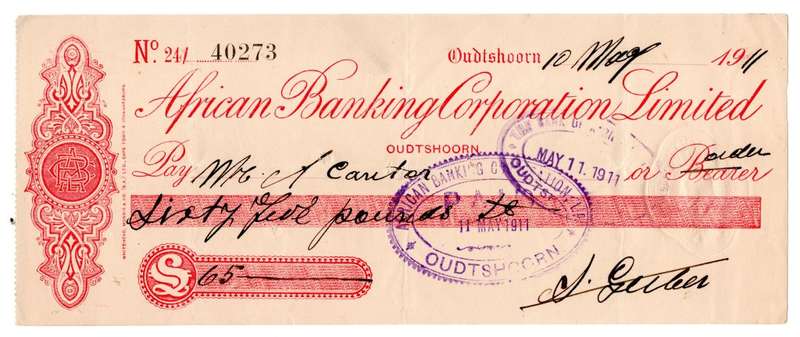 No. 241 40273
Oudtshoorn 10 May 1911
African Banking Corporation Limited
OUDTSHOORN
Pay Mr A Cantor or Bearer order
Sixty five pounds
£ 65
AFRICAN BANKING C
PAID
11 MAY 1911
OUDTSHOORN
BANK OF
MAY 11. 1911
OUDTS